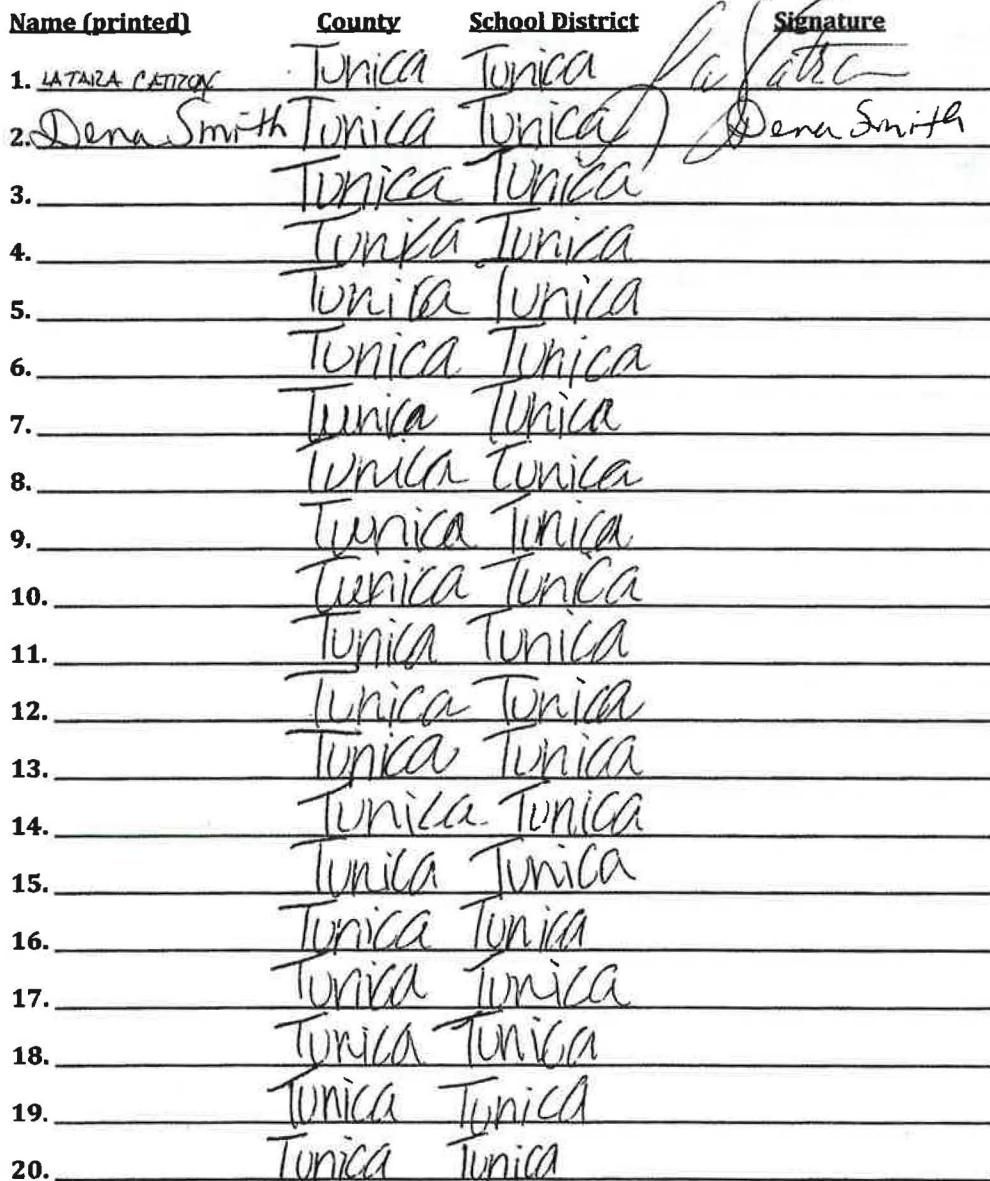 Name (printed) County School District Signature
1. Tunica Tunica
2. Dena Smith Tunica Tunica Dena Smith
3. Tunica Tunica
4. Tunica Tunica
5. Tunica Tunica
6. Tunica Tunica
7. Tunica Tunica
8. Tunica Tunica
9. Tunica Tunica
10. Tunica Tunica
11. Tunica Tunica
12. Tunica Tunica
13. Tunica Tunica
14. Tunica Tunica
15. Tunica Tunica
16. Tunica Tunica
17. Tunica Tunica
18. Tunica Tunica
19. Tunica Tunica
20. Tunica Tunica